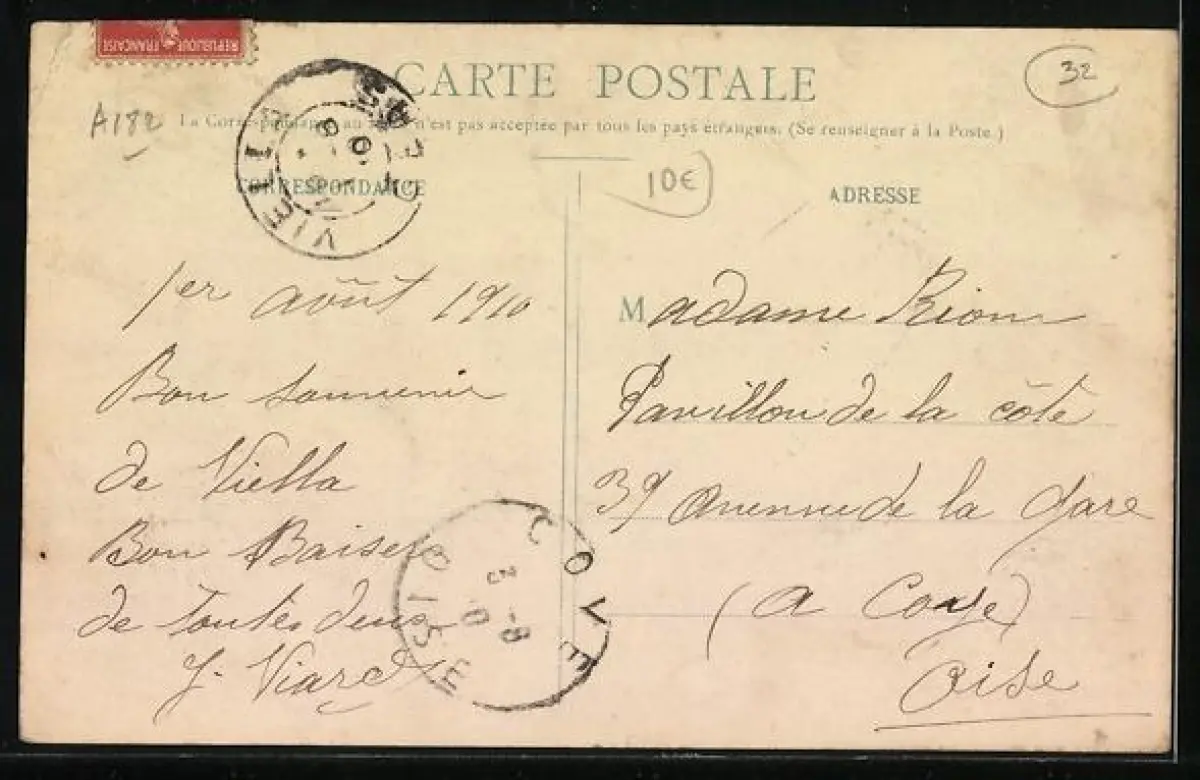 REPUBLIQUE FRANÇAISE
CARTE POSTALE
32
A182
La Correspondance au recto n'est pas acceptée par tous les pays étrangers. (Se renseigner à la Poste.)
10€
CORRESPONDANCE
VIELLA
GERS
1er août 1910
Bon souvenir
de Viella
Bon Baiser
de toutes deux
J. Viard
ADRESSE
Madame Rion
Pavillon de la côte
39 avenue de la Gare
(a Coye)
Oise
COYE
2-8
10
OISE